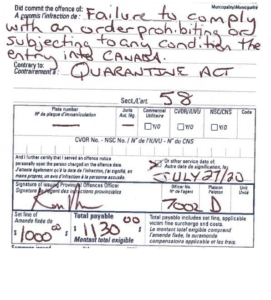 Did commit the offence of: Failure to comply
A commis l'infraction de :
Municipality/Municipalité
with an order prohibiting or
subjecting to any condition the
entry into CANADA.
Contrary to:
Contrairement à : QUARANTINE ACT
Sect./L'art. 58
Plate number
N° de plaque d'immatriculation
Juris
Aut. lég.
Commercial
Utilitaire
CVOR/IUVU
NSC/CNS
Code
Y/O
Y/O
Y/O
CVOR No. - NSC No. / N° de l'IUVU - N° du CNS
And I further certify that I served an offence notice
personally upon the person charged on the offence date.
J'atteste également qu'à la date de l'infraction, j'ai signifié, en
mains propres, un avis d'infraction à la personne accusée.
Or other service date of:
Autre date de signification, le:
JULY 27/20
Signature of issuing Provincial Offences Officer
Signature de l'agent des infractions provinciales
Officer No.
N° de l'agent
Platoon
Peloton
Unit
Unité
7002 D
Set fine of
Amende fixée de
$ 1000.00
Total payable
$ 1130 00
Montant total exigible
Total payable includes set fine, applicable
victim fine surcharge and costs.
Le montant total exigible comprend
l'amende fixée, la suramende
compensatoire applicable et les frais.